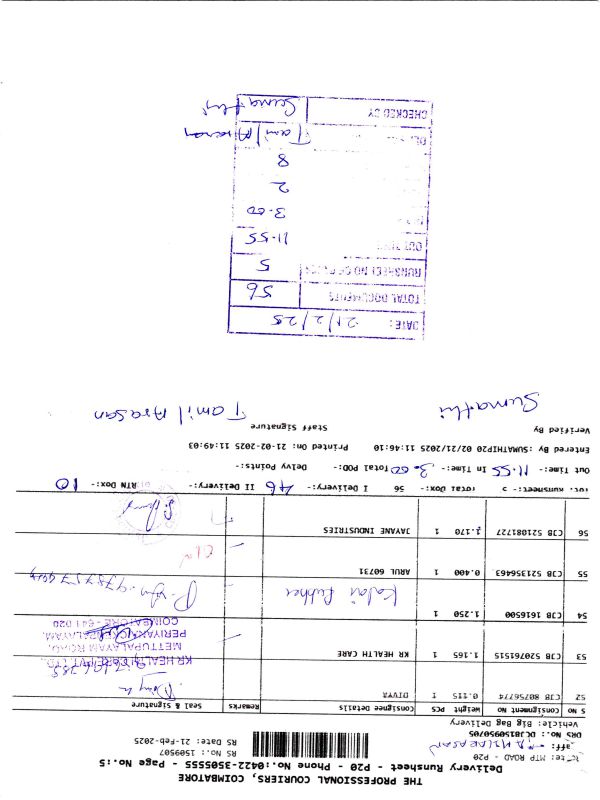 THE PROFESSIONAL COURIERS, COIMBATORE
Delivery Runsheet - P20 - Phone No.:0422-3505555 - Page No.:5
MTP ROAD - P20
RS No.: 1509507
DRS No.: DCB1509509705
RS Date: 21-Feb-2025
Vehicle: Big Bag Delivery
S NO Consignment No Weight PCS Consignee Details Remarks Seal & Signature
52 CJB 80756774 0.115 1 DIVYA Divya
53 CJB 520761515 1.165 1 KR HEALTH CARE
KR HEALTH CARE PVT. LTD.,
METTUPALAYAM ROAD,
PERIYANAICKENPALAYAM,
COIMBATORE - 641 020
54 CJB 1616500 1.250 1 Kalai Rubber
55 CJB 521356463 0.400 1 ARUL 60731
56 CJB 521081727 1.170 1 JAYANE INDUSTRIES
Tot. Runsheet:- 5 Total Dox:- 56 I Delivery:- 46 II Delivery:- RTN Dox:- 10
Out Time:- 11.55 In Time:- 3.00 Total POD:- Delvy Points:-
Entered By :SUMATHIP20 02/21/2025 11:46:10 Printed On: 21-02-2025 11:49:03
Verified By Staff Signature
Sumathi Tamil Arasan
DATE: 21/2/25
TOTAL DOCUMENTS 56
RUNSHEET NO OF PAGES 5
OUT TIME 11.55
3.00
2
8
Tamil Arasan
CHECKED BY Sumathi